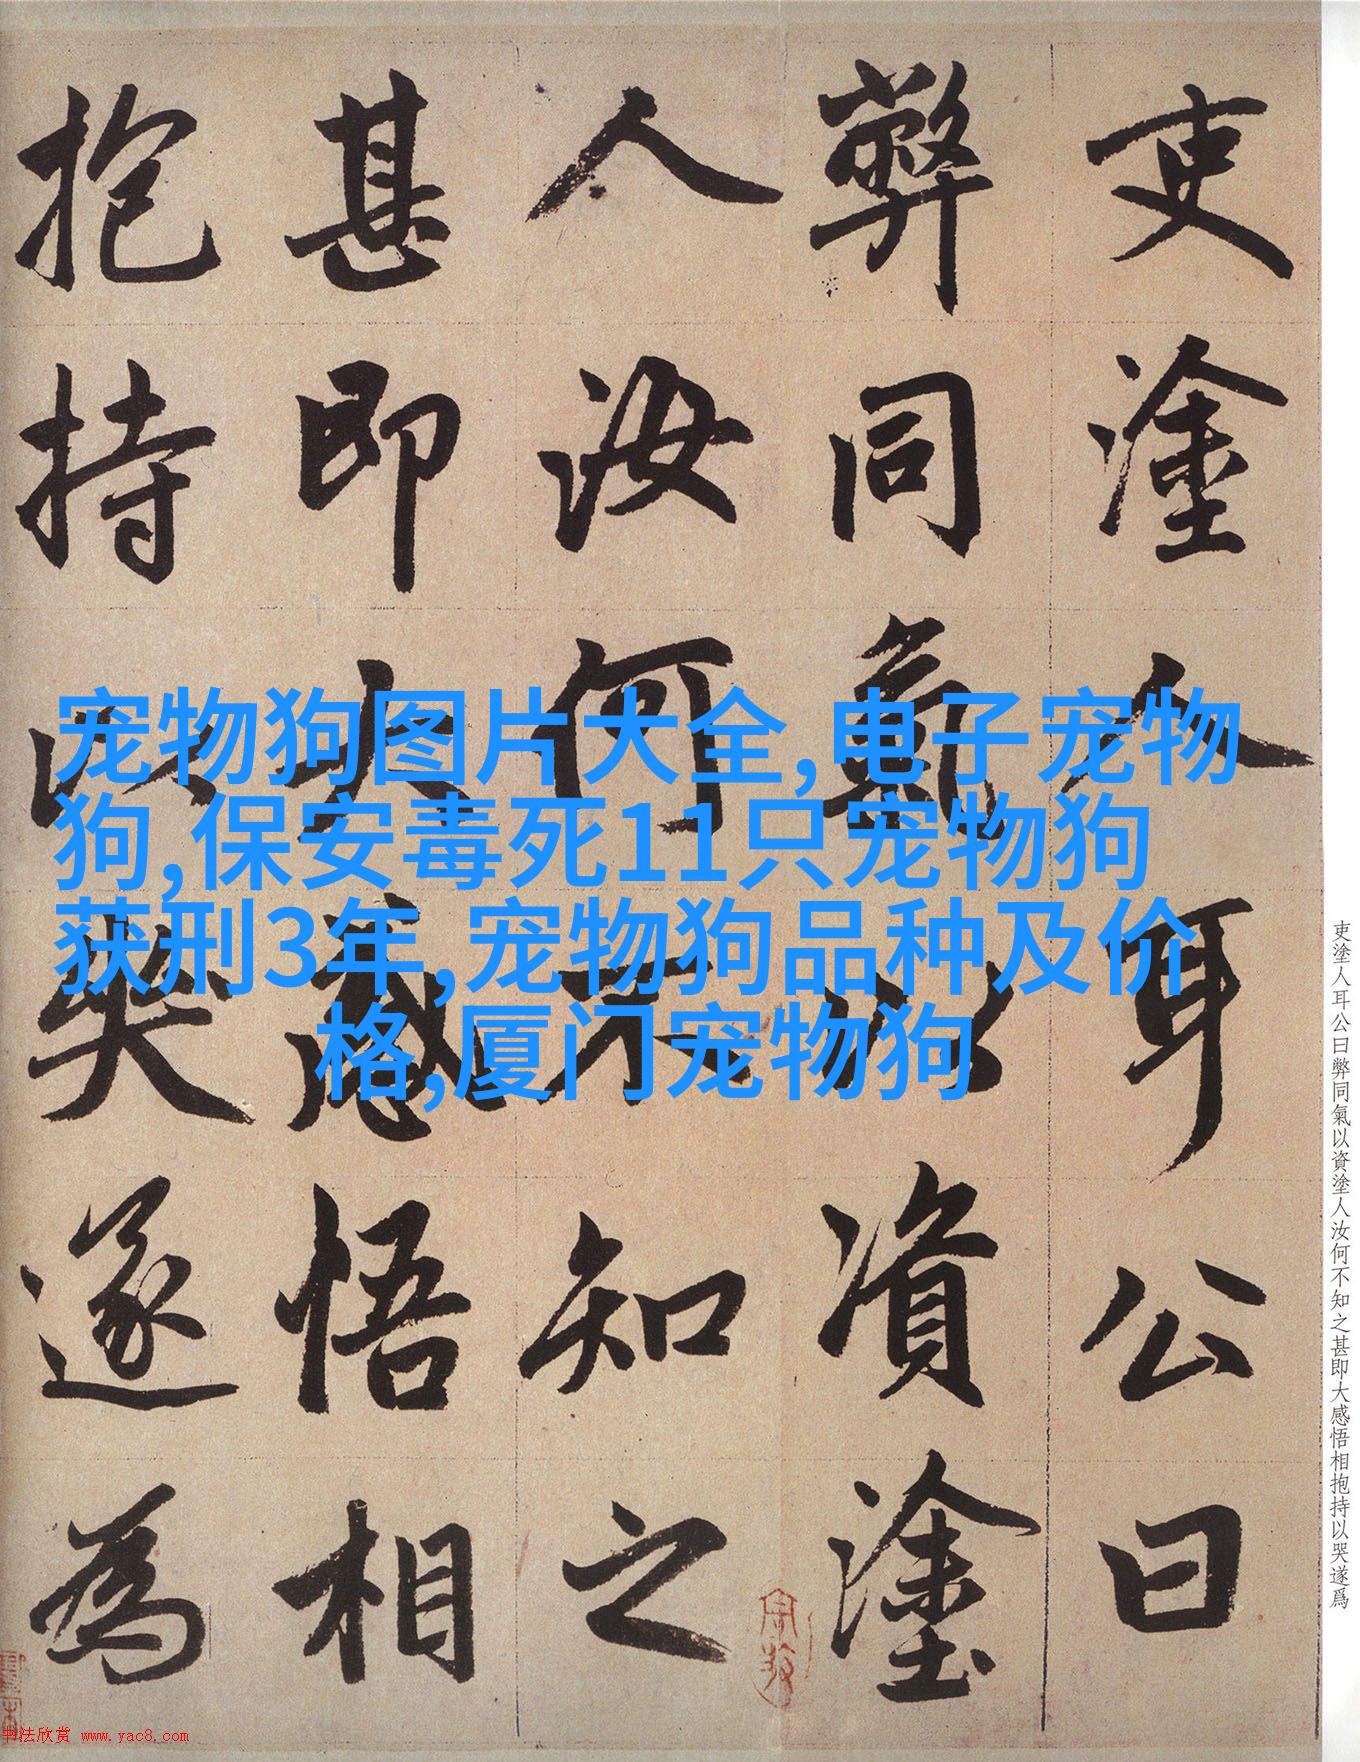 吏塗人耳公曰
弊同氣以資塗
人汝何不知之
甚即大感悟相
抱持以哭遂為
宠物狗图片大全,电子宠物
狗,保安毒死11只宠物狗
获刑3年,宠物狗品种及价
格,厦门宠物狗
吏塗人耳公曰弊同氣以資塗人汝何不知之甚即大感悟相抱持以哭遂爲
书法欣赏 www.yac8.com